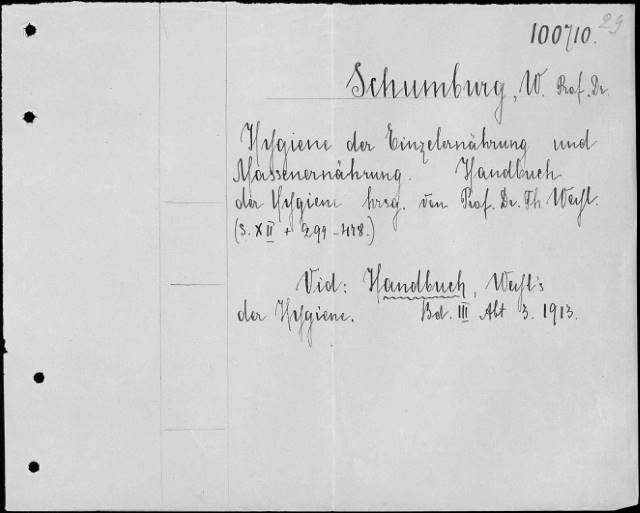 29
100710.
Schumburg, W. Prof. Dr.
Hygiene der Einzelernährung und
Massenernährung. Handbuch
der Hygiene hrsg. von Prof. Dr. Th Weyl.
(S. XII + 299 - 478.)
Vid: Handbuch, Weyl's
der Hygiene. Bd. III Abt 3. 1913.